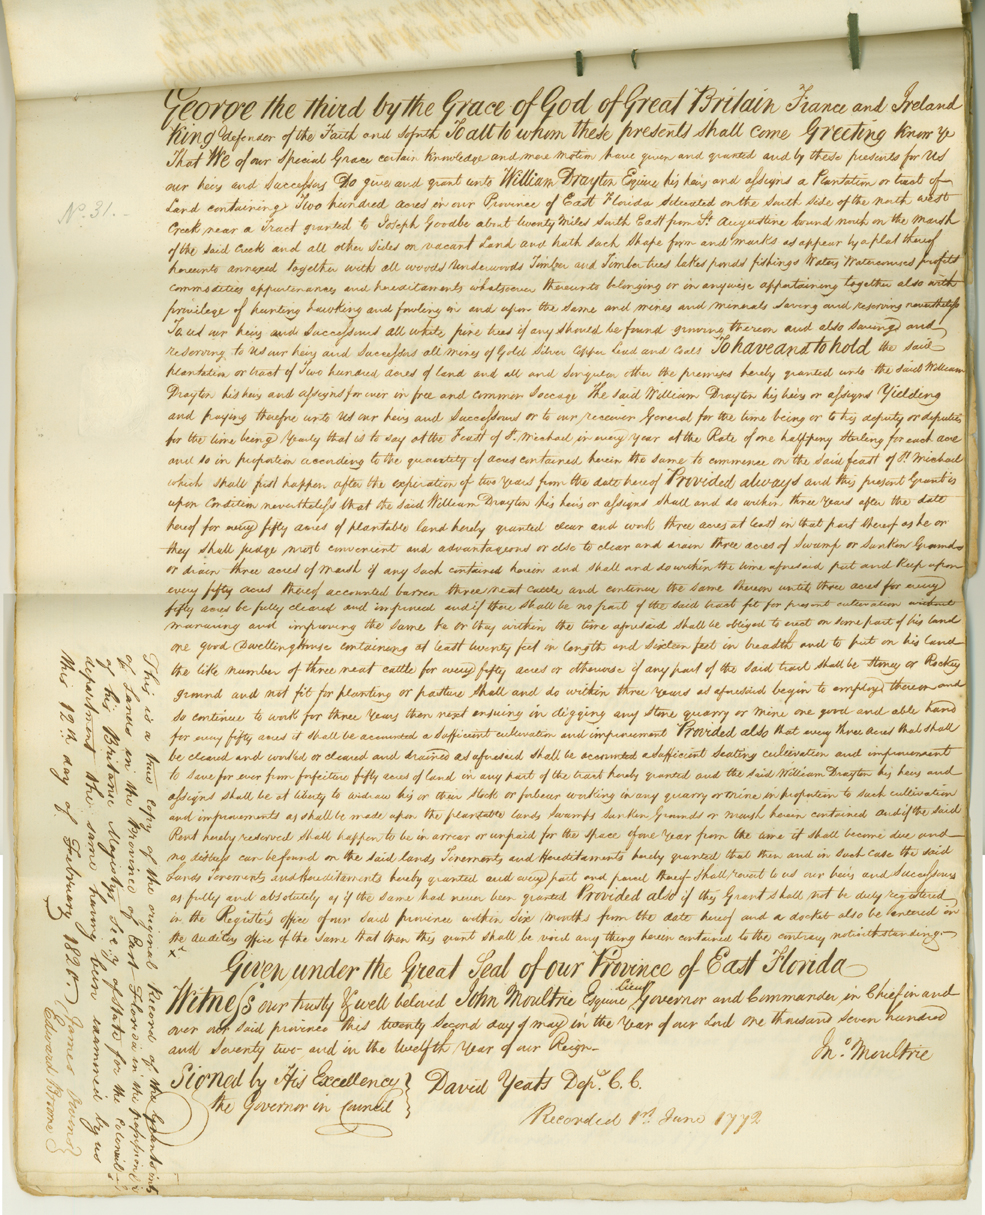 George the third by the Grace of God of Great Britain France and Ireland
King Defender of the Faith and soforth To all to whom these presents shall come Greeting Know Ye
That We of our Special Grace certain knowledge and mere motion have given and granted and by these presents for Us
our heirs and Successors Do give and grant unto William Drayton Esquire his heirs and assigns a Plantation or tract of
Land containing Two hundred acres in our Province of East Florida situated on the South side of the north west
Creek near a Tract granted to Joseph Goodbe about twenty Miles South East from St. Augustine bound north on the Marsh
of the said Creek and all other Sides on vacant Land and hath such shape form and marks as appear by a plat thereof
hereunto annexed Together with all woods Underwoods Timber and Timber trees lakes ponds fishings Waters Watercourses profits
commodities appurtenances and hereditaments whatsoever thereunto belonging or in anywise appertaining together also with
privilege of hunting hawking and fowling in and upon the same and mines and minerals saving and reserving nevertheless
To us our heirs and Successors all white pine trees if any should be found growing thereon and also saving and
reserving to us our heirs and Successors all mines of Gold Silver Copper Lead and Coals To have and to hold the said
plantation or tract of Two hundred acres of land and all and singular other the premises hereby granted unto the said William
Drayton his heirs and assigns for ever in free and common Soccage The said William Drayton his heirs or assigns Yielding
and paying therefore unto Us our heirs and Successors or to our receiver General for the time being or to his deputy or deputies
for the time being Yearly that is to say at the Feast of St. Michael in every year at the Rate of one halfpenny Sterling for each acre
and so in propotion according to the quantity of acres contained herein the same to commence on the said feast of St. Michael
which shall first happen after the expiration of two Years from the date hereof Provided always and this present Grant is
upon Condition nevertheless that the said William Drayton his heirs or assigns shall and do within three Years after the date
hereof for every fifty acres of plantable land hereby granted clear and work three acres at least in that part thereof as he or
they shall judge most convenient and advantageous or else to clear and drain three acres of Swamp or Sunken Grounds
or drain three acres of Marsh if any such contained herein and shall and do within the time aforesaid put and keep upon
every fifty acres thereof accounted barren three neat cattle and continue the same thereon until three acres for every
fifty acres be fully cleared and improved and if there shall be no part of the said tract fit for present cultivation without
manuring and improving the same he or they within the time aforesaid shall be obliged to erect on some part of his land
one good Dwellinghouse containing at least twenty feet in length and sixteen feet in breadth and to put on his land
the like number of three neat cattle for every fifty acres or otherwise if any part of the said tract shall be Stoney or Rockey
ground and not fit for planting or pasture shall and do within three Years as aforesaid begin to employ thereon and
so continue to work for three Years then next ensuing in digging any Stone quarry or mine one good and able hand
for every fifty acres it shall be accounted a sufficient cultivation and improvement Provided also that every three Acres that shall
be cleared and worked or cleared and drained as aforesaid shall be accounted a Sufficient seating cultivation and improvement
to save for ever from forfeiture fifty acres of land in any part of the tract hereby granted and the said William Drayton his heirs and
assigns shall be at liberty to widraw his or their Stock or forbear working in any quarry or mine in propotion to such cultivation
and improvements as shall be made upon the plantable lands Swamps Sunken Grounds or marsh herein contained And if the said
Rent hereby reserved shall happen to be in arrear or unpaid for the space of one Year from the time it shall become due and
no distress can be found on the said lands Tenements and Hereditaments hereby granted that then and in such case the said
Lands Tenements and Hereditaments hereby granted and every part and parcel thereof shall revert to us our heirs and Successors
as fully and absolutely as if the same had never been granted Provided also if this Grant shall not be duly registered
in the Register's office of our Said province within Six months from the date hereof and a docket also be entered in
the auditors office of the Same that then this grant shall be void any thing herein contained to the contrary notwithstanding.
Given under the Great Seal of our Province of East Florida
Witness our trusty & well beloved John Moultrie Esquire Lieut. Governor and Commander in Chief in and
over our said province this twenty Second day of May in the Year of our Lord one thousand seven hundred
and Seventy two and in the twelfth Year of our Reign
Jno. Moultrie
Signed by His Excellency
the Governor in Council
David Yeats Depy. C. C.
Recorded 1st. June 1772
No. 31.
This is a true copy of the original Record of the Grants
of Lands in the Province of East Florida in the possession
of his Britanic Majestys Secy. of State for the Colonial
department the same having been examined by us
this 12th day of February 1820.
James
Edward